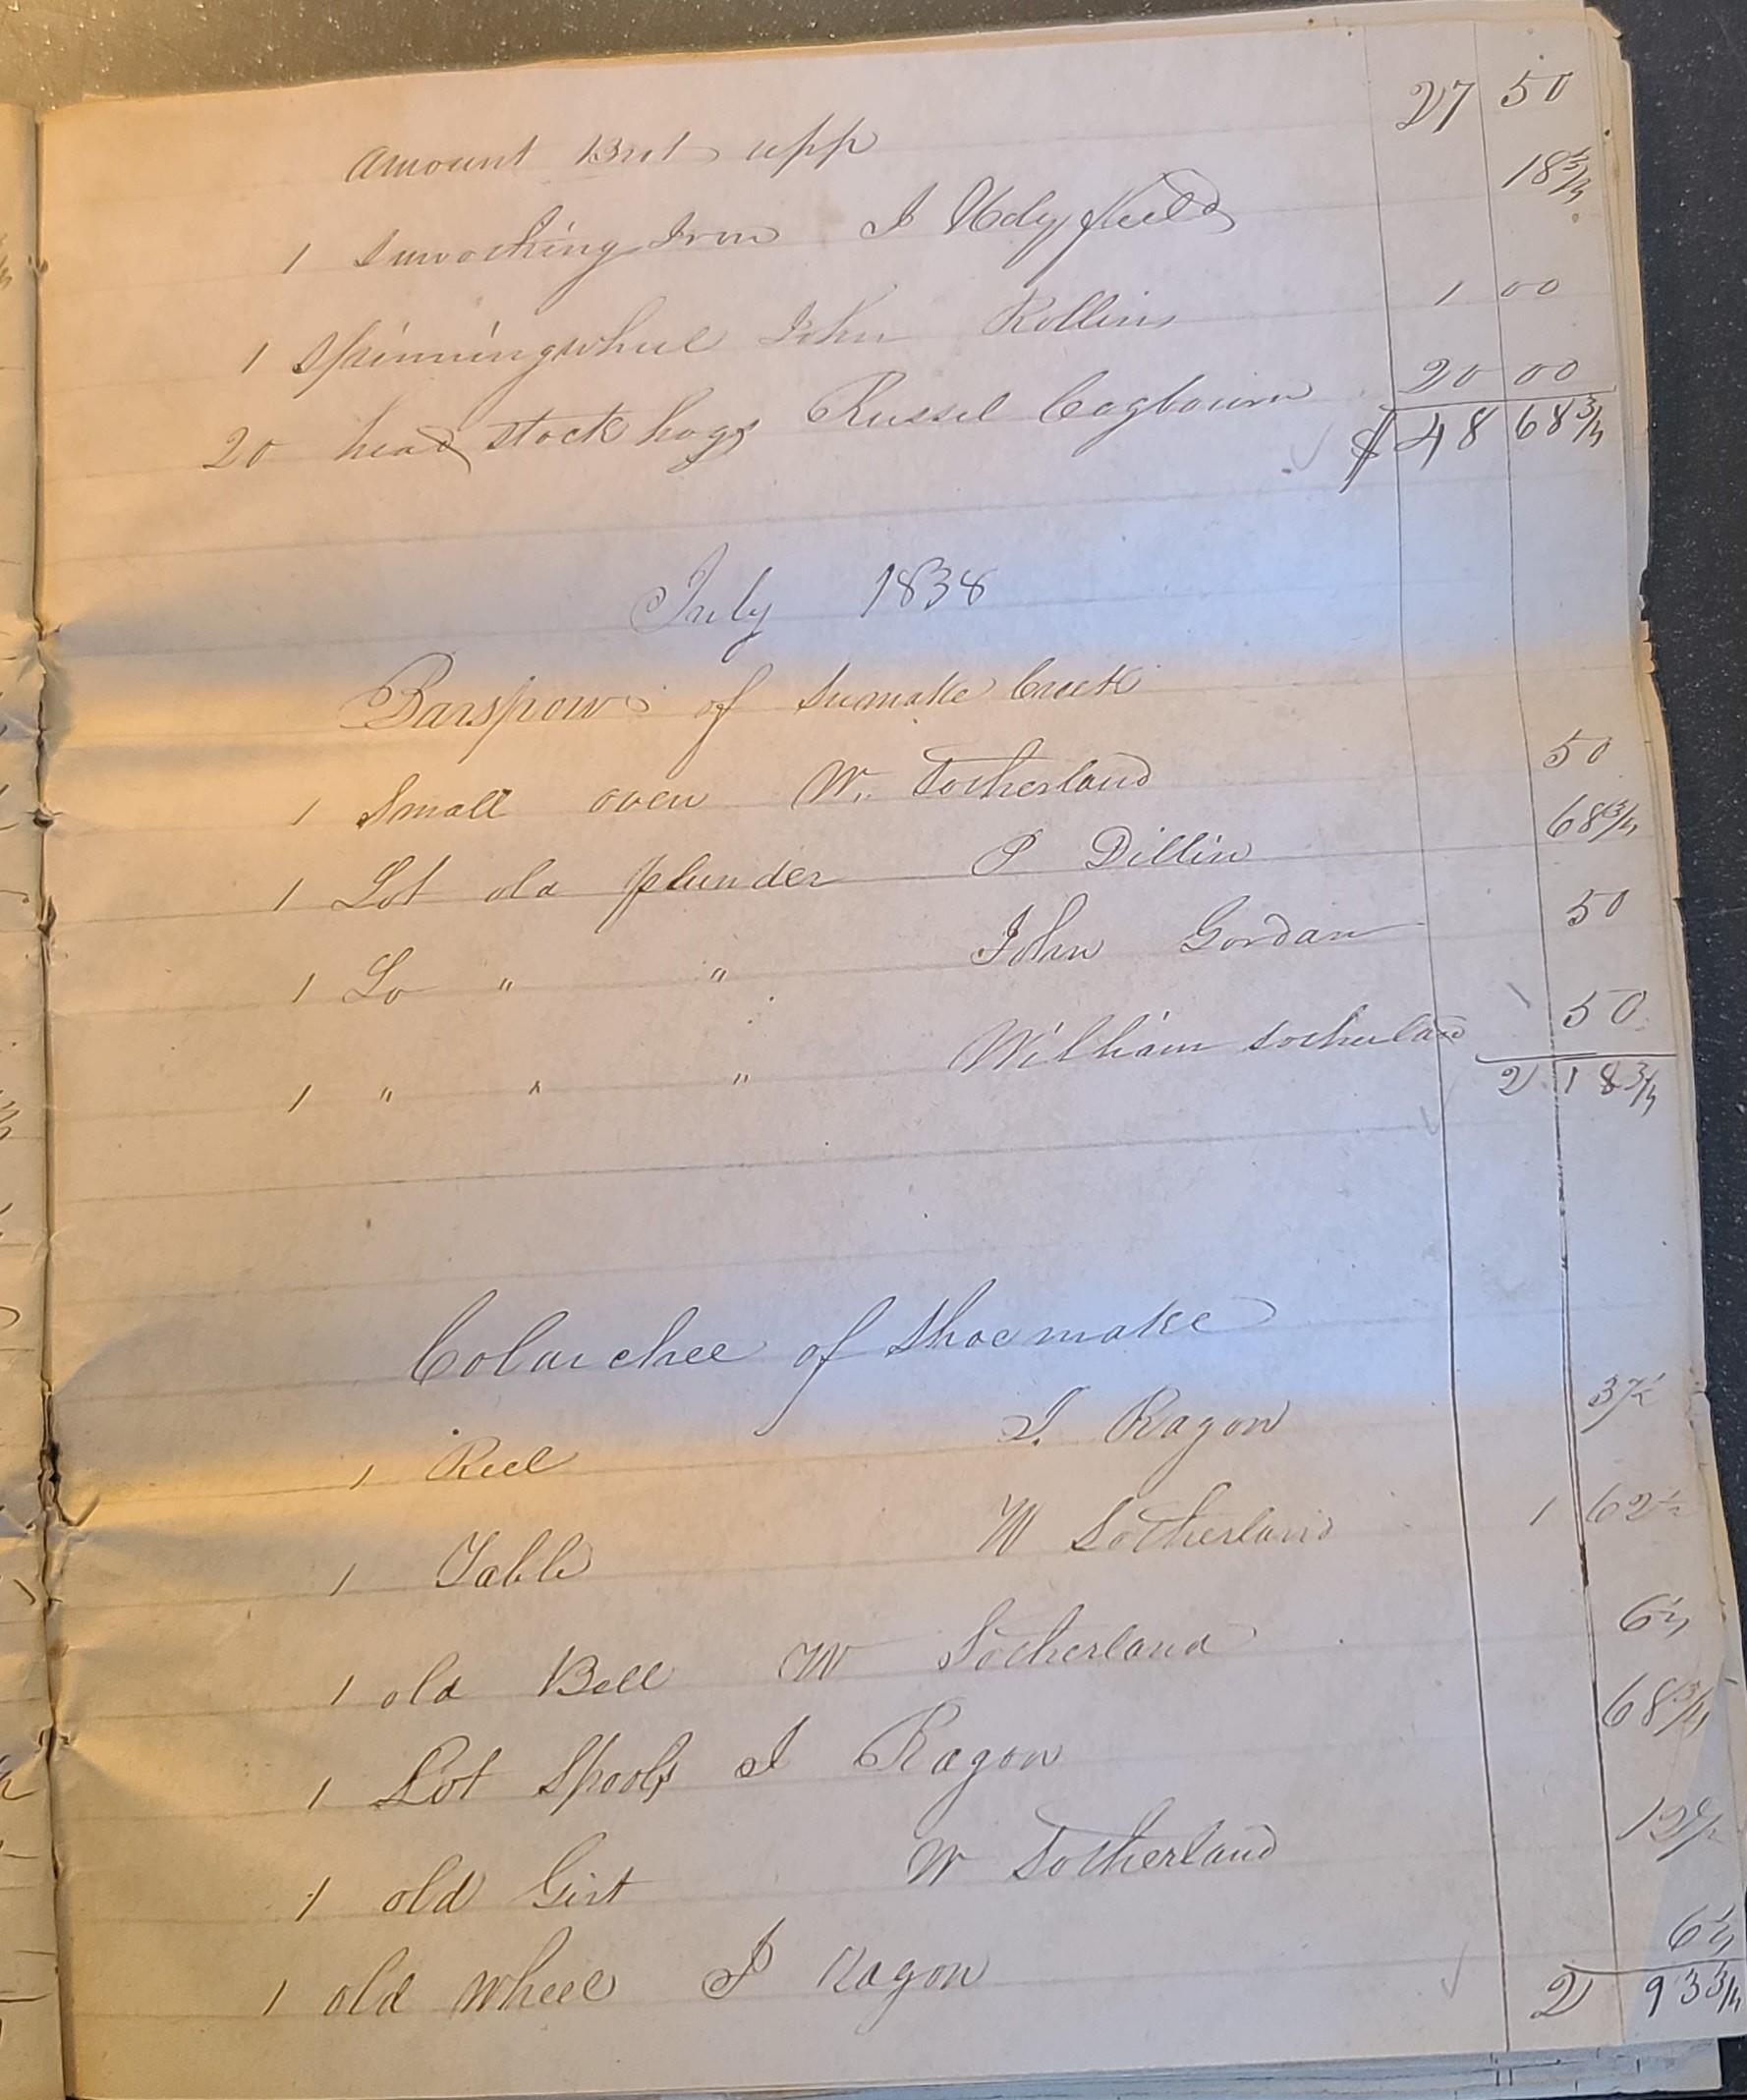 Amount Brot upp 27 50
1 Smoothing Iron J Holyfield 18 3/4
1 Spinningwheel John Rollins 1 00
20 head stock hogs Russel Cogbourn 20 00
$ 48 68 3/4
July 1838
Barspow of Sumake Creek
1 Small oven W. Sotherland 50
1 Lot old plunder P Dillin 68 3/4
1 Lo " " John Gordan 50
1 " " " William Sotherland 50
2 18 3/4
of Shoemake
1 Reel J. Ragon 37 1/2
1 Table W Sotherland 1 62 1/2
1 old Bell W Sotherland 6 1/4
1 Lot Spools J Ragon 68 3/4
1 old Girt W Sotherland 12 1/2
1 old wheel J Ragon 6 1/4
2 93 3/4